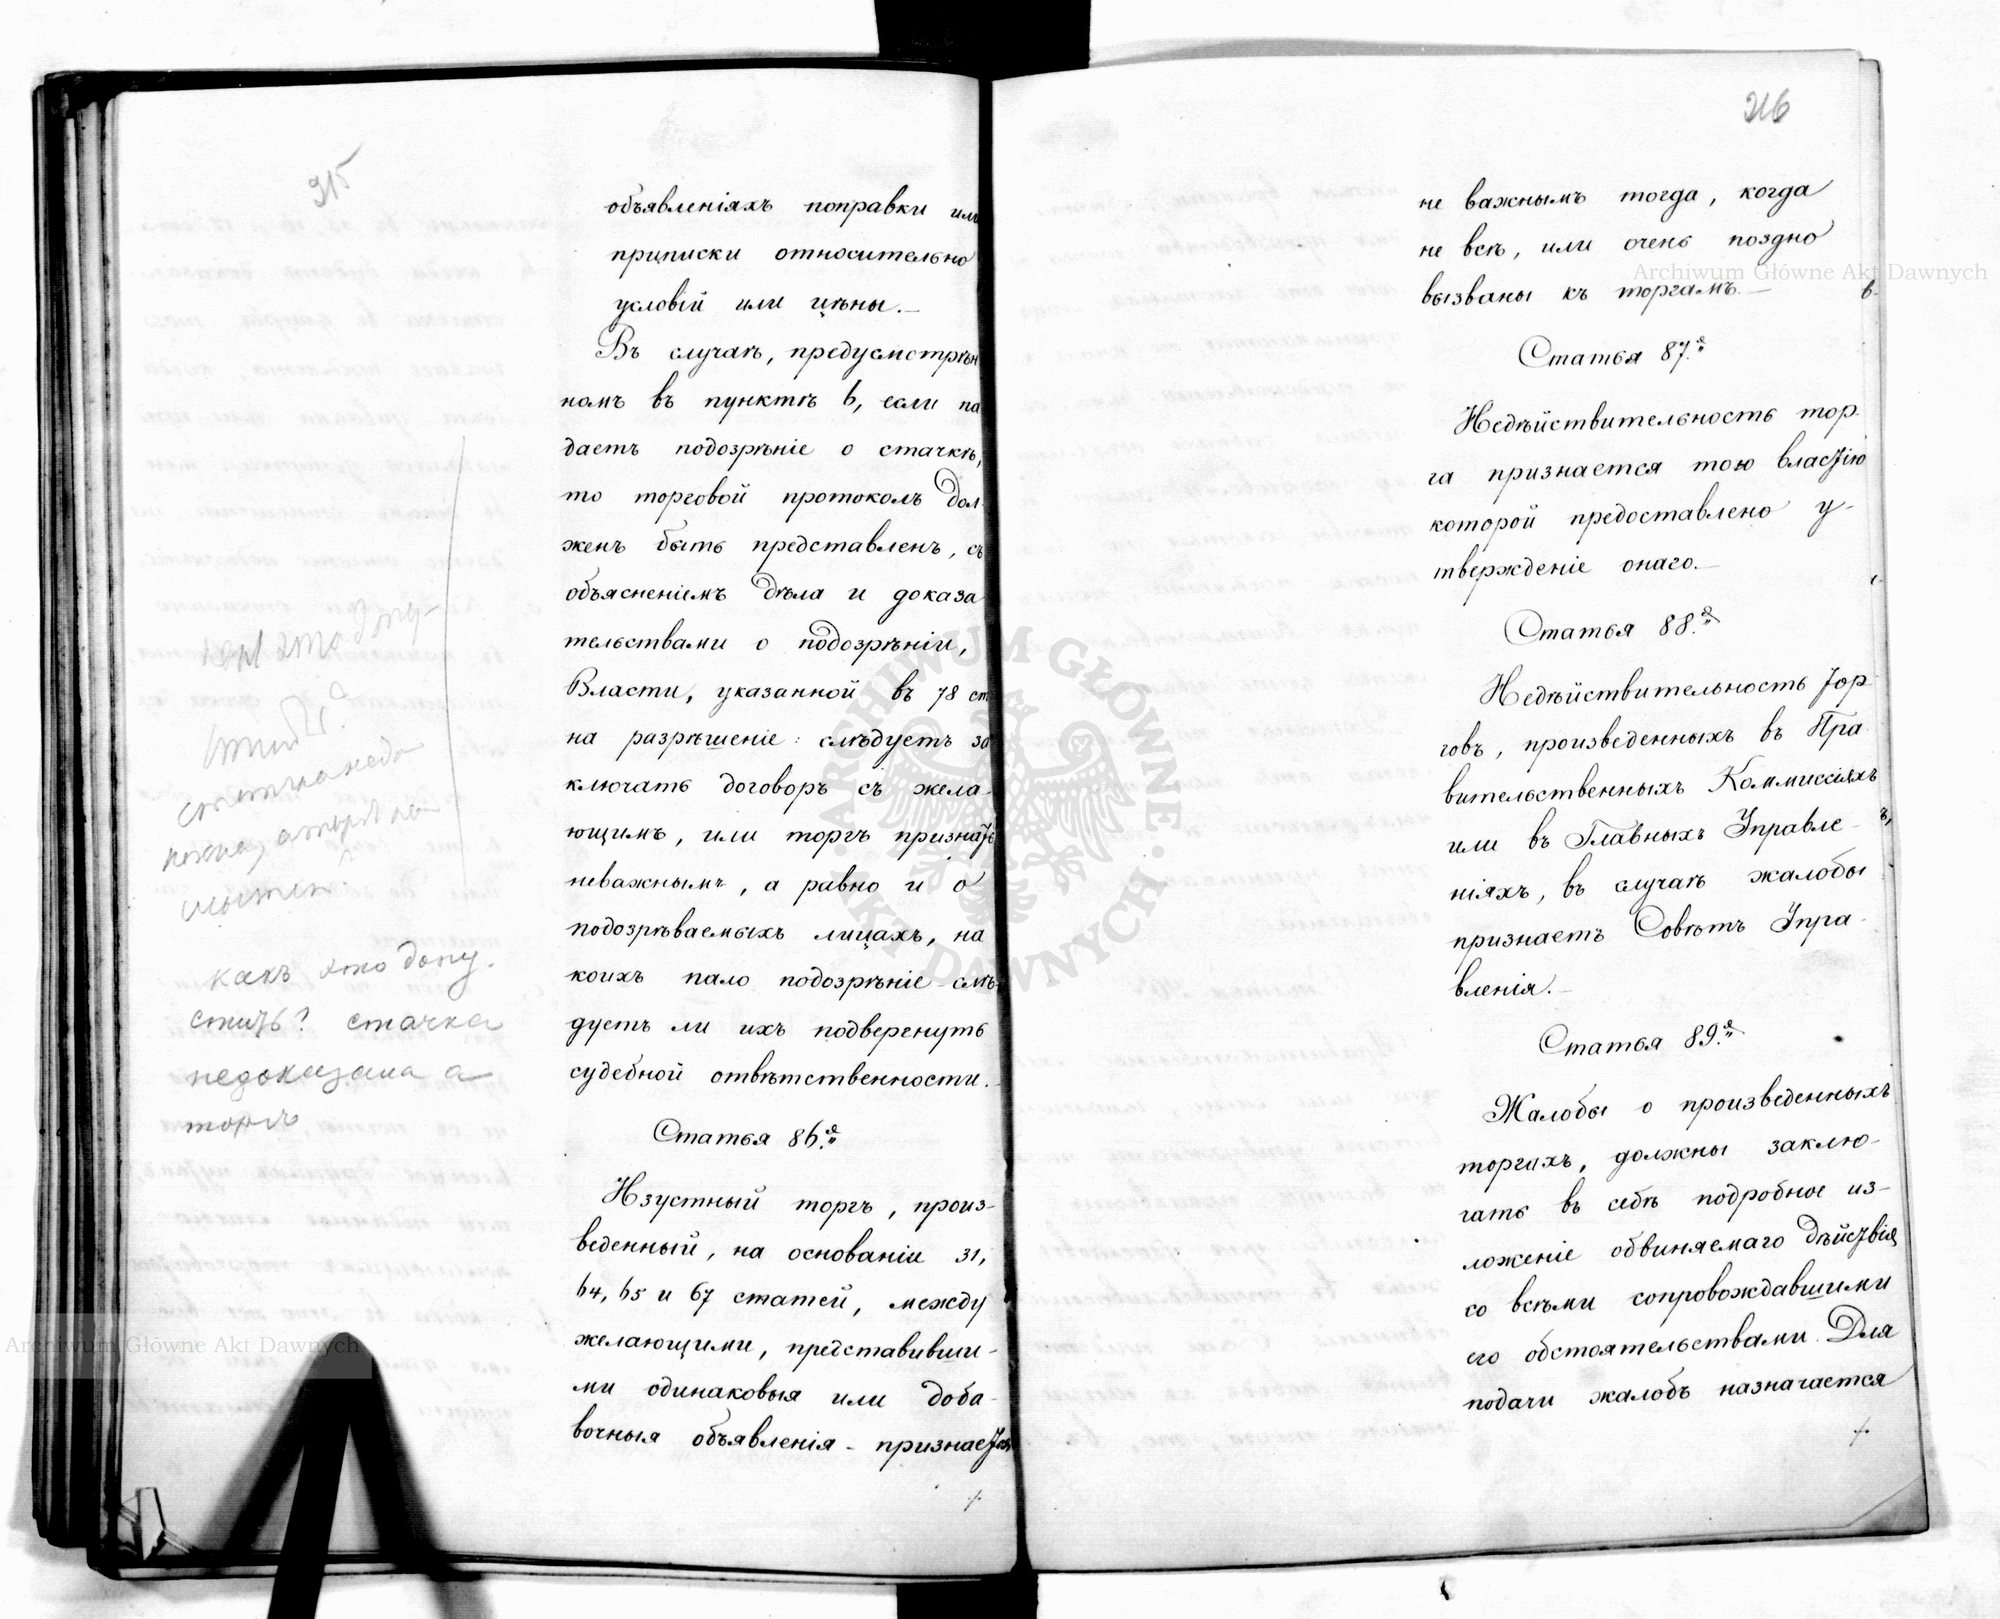 315
объявленіяхъ поправки или
приписки относительно
условій или цѣны.—
Въ случаѣ, предусмотрѣн
номъ въ пунктѣ b, если па
даетъ подозрѣніе о стачкѣ,
то торговой протоколъ дол-
женъ быть представленъ, съ
объясненіемъ дѣла и доказа
тельствами о подозрѣніи,
Власти, указанной въ 78 ст
на разрѣшеніе: слѣдуетъ за
ключать договоръ съ жела-
ющимъ, или торгъ признать
неважнымъ, а равно и о
подозрѣваемыхъ лицахъ, на
коихъ пало подозрѣніе – слѣ-
дуетъ ли ихъ подвергнуть
судебной отвѣтственности.
Статья 86.я
Изустный торгъ, произ-
веденный, на основаніи 31,
64, 65 и 67 статей, между
желающими, представивши-
ми одинаковыя или доба-
вочныя объявленія – признается
./.
какъ это допу-
стить?
стачка
недоказана а
торгъ
какъ это допу-
стить? стачка
недоказана а
торгъ
216
не важнымъ тогда, когда
не всѣ, или очень поздно
вызваны къ торгамъ.—
Статья 87.я
Недѣйствительность тор-
га признается тою властію
которой предоставлено у-
твержденіе онаго.—
Статья 88.я
Недѣйствительность тор-
говъ, произведенныхъ въ Пра-
вительственныхъ Коммиссіяхъ
или въ Главныхъ Управле-
ніяхъ, въ случаѣ жалобы
признаетъ Совѣтъ Упра-
вленія.—
Статья 89.я
Жалобы о произведенныхъ
торгахъ, должны заклю-
чать въ себѣ подробное из-
ложеніе обвиняемаго дѣйствія
со всѣми сопровождавшими
его обстоятельствами. Для
подачи жалобъ назначается
./.
Archiwum Główne Akt Dawnych
Archiwum Główne Akt Dawnych
ARCHIWUM GŁÓWNE
AKT DAWNYCH